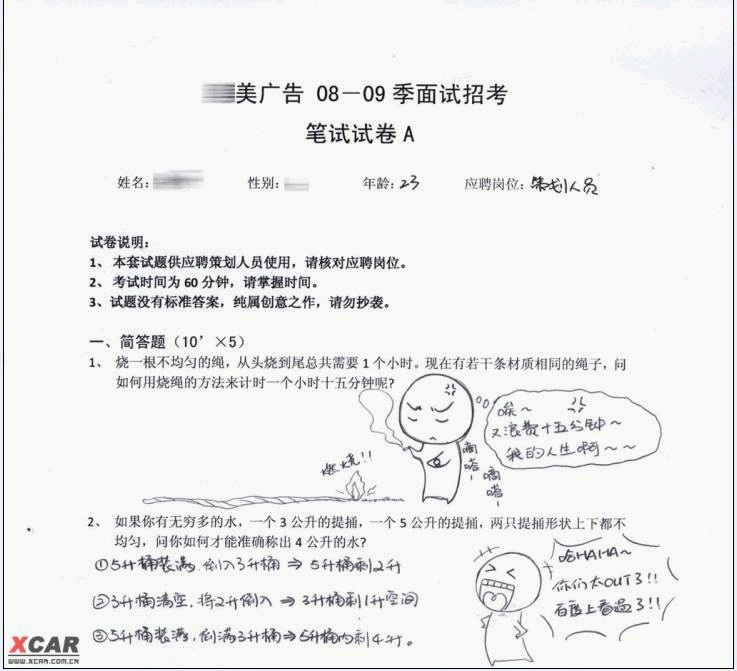 美广告 08－09 季面试招考
笔试试卷 A
姓名: 性别: 年龄: 23 应聘岗位: 策划人员
试卷说明:
1、 本套试题供应聘策划人员使用，请核对应聘岗位。
2、 考试时间为 60 分钟，请掌握时间。
3、试题没有标准答案，纯属创意之作，请勿抄袭。
一、简答题（10’×5）
1、 烧一根不均匀的绳，从头烧到尾总共需要 1 个小时。现在有若干条材质相同的绳子，问
如何用烧绳的方法来计时一个小时十五分钟呢?
唉～
又浪费十五分钟～
我的人生啊～～
嘀嗒-
嘀嗒-
燃烧!!
2、 如果你有无穷多的水，一个 3 公升的提捅，一个 5 公升的提捅，两只提捅形状上下都不
均匀，问你如何才能准确称出 4 公升的水?
①5升桶装满，倒入3升桶⇒5升桶剩2升
②3升桶清空，将2升倒入⇒3升桶剩1升空间
③5升桶装满，倒满3升桶⇒5升桶内剩4升。
哈HAHA～
你们太OUT了!!
百度上看过了!!
XCAR
WWW.XCAR.COM.CN